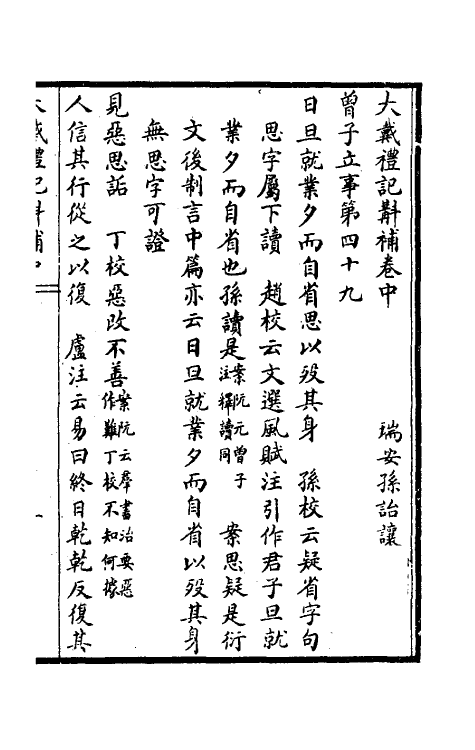 大戴禮記斠補卷中
瑞安孫詒讓
曾子立事第四十九
日旦就業夕而自省思以歿其身　孫校云疑省字句
思字屬下讀　趙校云文選風賦注引作君子旦就
業夕而自省也孫讀是案阮元曾子注釋讀同　案思疑是衍
文後制言中篇亦云日旦就業夕而自省以歿其身
無思字可證
見惡思詬　丁校惡改不善案阮云羣書治要惡作難丁校不知何據
人信其行從之以復　盧注云易曰終日乾乾反復其
大戴禮記斠補中
一